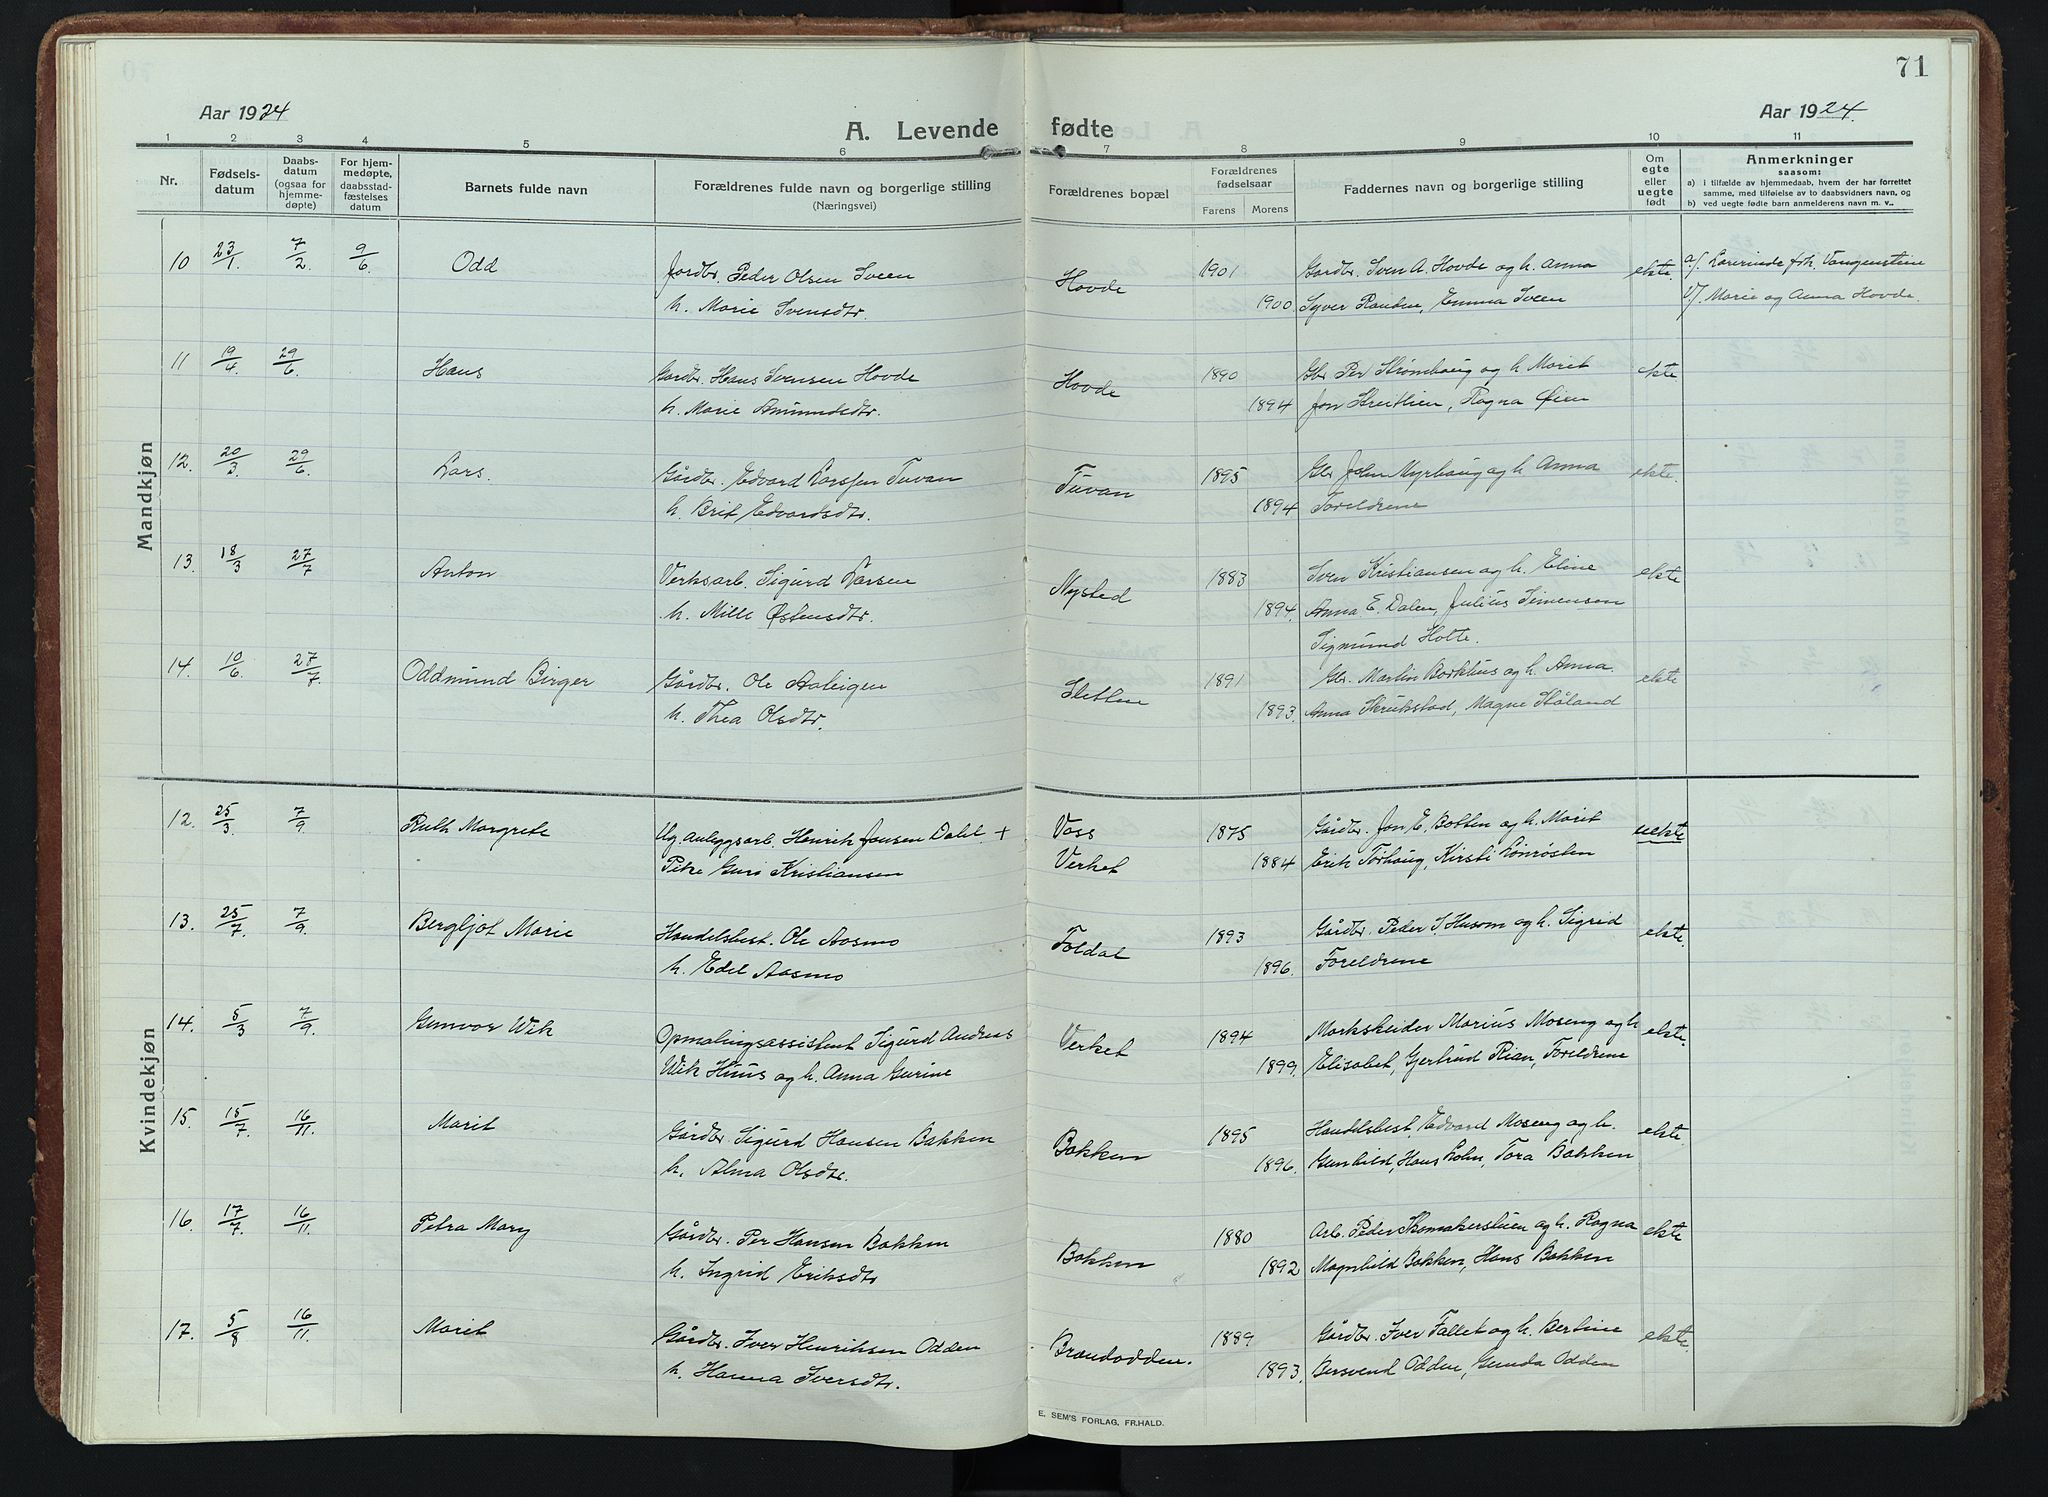 71
Aar 1924
Aar 1924.
A. Levende fødte
1 2 3 4 5 6 7 8 9 10 11
Nr.
Fødselsdatum
Daabsdatum (ogsaa for hjemmedøpte)
For hjemmedøpte, daabsstadfæstelses datum
Barnets fulde navn
Forældrenes fulde navn og borgerlige stilling
(Næringsvei)
Forældrenes bopæl
Forældrenes fødselsaar
Farens Morens
Faddernes navn og borgerlige stilling
Om egte eller uegte født
Anmerkninger
saasom:
a) i tilfælde av hjemmedaab, hvem der har forrettet samme, med tilføielse av to daabsvidners navn, og
b) ved uegte fødte barn anmelderens navn m. v..
Mandkjøn
10 23/1 7/2 9/6 Odd Jordbr. Peder Olsen Sveen Hovde 1901 Gardbr. Sven A. Hovde og h. Anna ekte a/. Lærerinde frk. Vangensteine
h. Marie Svensdtr. 1900. Syver Randen, Emma Sveen V/. Marie og Anna Hovde.
11 19/4 29/6 Hans Gardbr. Hans Svensen Hovde Hovde 1890 Gbr Per Strømhaug og h. Marit ekte
h. Marie Amundsdtr. 1894 Jon Streitlien, Ragna Øien
12. 20/3 29/6 Lars. Gårdbr. Edvard Larssen Tuvan Tuvan 1895 Gbr John Myrhaug og h. Anna ekte.
h. Brit Edvardsdtr. 1894 Foreldrene
13. 18/3 27/7 Anton Verksarb. Sigurd Larsen Nysted 1883 Sven Kristiansen og h. Eline ekte
h. Milli Østensdtr. 1894. Anna E. Dalen, Julius Simensen
Sigmund Holte.
14. 10/6 27/7. Oddmund Birger Gårdbr. Ole Aaleigen Sletten 1891 Gbr. Martin Borkhus og h. Anna. ekte
h. Thea Olsdtr. 1893. Anna Skrukstad, Magne Ståland
Kvindekjøn
12. 25/3. 7/9 Ruth Margrete Ug. anleggsarb. Henrik Jonsen Dalel + Voss 1875 Gårdbr. Jon E. Botten og h. Marit uekte
Petre Guro Kristiansen Verket 1884 Erik Torhaug, Kirsti Lonrøsten
13. 25/7. 7/9. Bergljot Marie Handelsbest. Ole Aasmo Foldal 1893 Gårdbr. Peder S. Husom og h. Sigrid ekte.
h. Edel Aasmo 1896. Foreldrene
14. 5/3 7/9. Gunvor Wik Opmalingsassistent Sigurd Andreas Verket 1894 Markskeider Marius Moseng og h ekte.
Wik Huus og h. Anna Gurine 1899. Elisabet, Gjertrud Rian, Foreldrene
15. 15/7. 16/11. Marit Gårdbr. Sigurd Hansen Bakken Bakken 1895 Handelsbest. Edvard Moseng og h. ekte.
h. Alma Olsdtr. 1896. Gunhild, Hans Holm, Tora Bakken
16. 17/7. 16/11. Petra Mary Gårdbr. Per Hansen Bakken Bakken 1880 Arb. Peder Skomakerstuen og h. Ragna ekte
h. Ingrid Eriksdtr 1892 Magnhild Bakken, Hans Bakken
17. 5/8 16/11. Marit Gårdbr. Iver Henriksen Odden Brandodden. 1889 Gårdbr. Iver Fallet og h. Bertine ekte.
h. Hanna Iversdtr. 1893. Bersvend Odden, Gunda Odden
E. SEM'S FORLAG, FR.HALD.